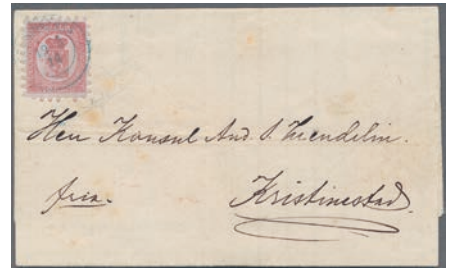 Herr Konsul And. S. Wendelin.
fria. Kristinestad